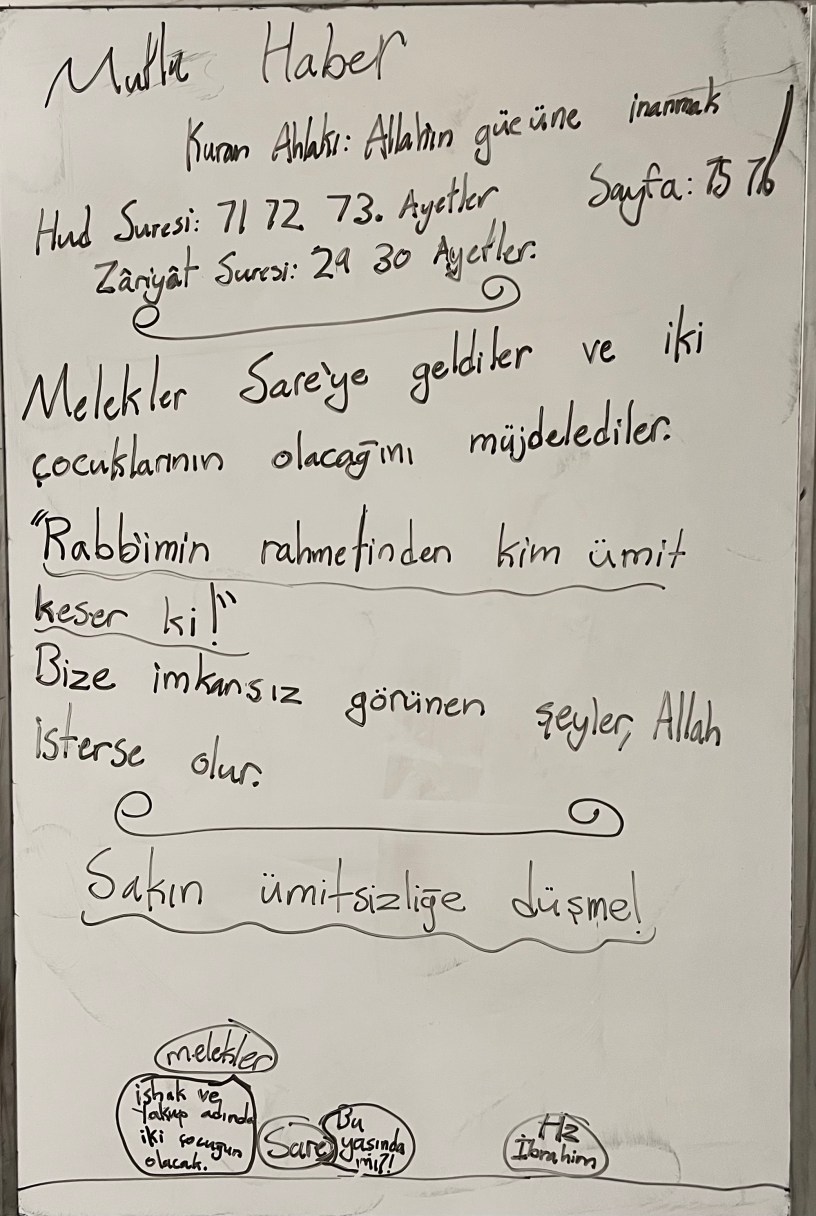 Mutlu Haber
Kuran Ahlakı: Allah'ın gücüne inanmak
Sayfa: 75 76
Hud Suresi: 71 72 73. Ayetler
Zâriyât Suresi: 29 30 Ayetler.
Melekler Sare'ye geldiler ve iki
çocuklarının olacağını müjdelediler.
"Rabb'imin rahmetinden kim ümit
keser ki!"
Bize imkansız görünen şeyler, Allah
isterse olur.
Sakın ümitsizliğe düşme!
melekler
işhak ve
Yakup adında
iki çocuğun
olacak.
Sare
Bu
yaşında
mı?!
Hz
İbrahim